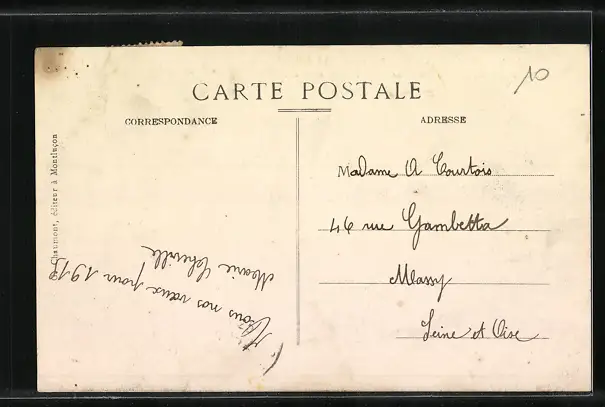 CARTE POSTALE
CORRESPONDANCE
ADRESSE
10
Chaumont, éditeur à Montluçon
Madame A Courtois
46 rue Gambetta
Massy
Seine et Oise
Tous nos vœux pour 1913
Marie